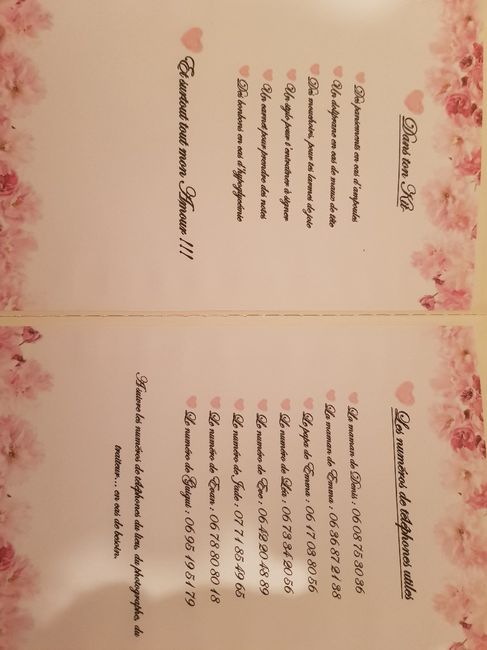 Dans ton Kit
Des pansements en cas d'ampoules
Un doliprane en cas de maux de tête
Des mouchoirs, pour tes larmes de joie
Un stylo pour t'entraîner à signer
Un carnet pour prendre des notes
Des bonbons en cas d'hypoglycémie
Et surtout tout mon Amour !!!
Les numéros de téléphones utiles
La maman de Denis : 06 08 75 30 36
La maman de Emma : 06 36 87 21 38
Le papa de Emma : 06 17 03 80 56
Le numéro de Léa : 06 73 34 20 56
Le numéro de Eve : 06 42 20 48 89
Le numéro de Jade : 07 71 85 49 55
Le numéro de Evan : 06 78 80 80 18
Le numéro de Guigui : 06 95 19 51 79
les numéros de téléphones du lieu, du photographe, du
traiteur… en cas de besoin.